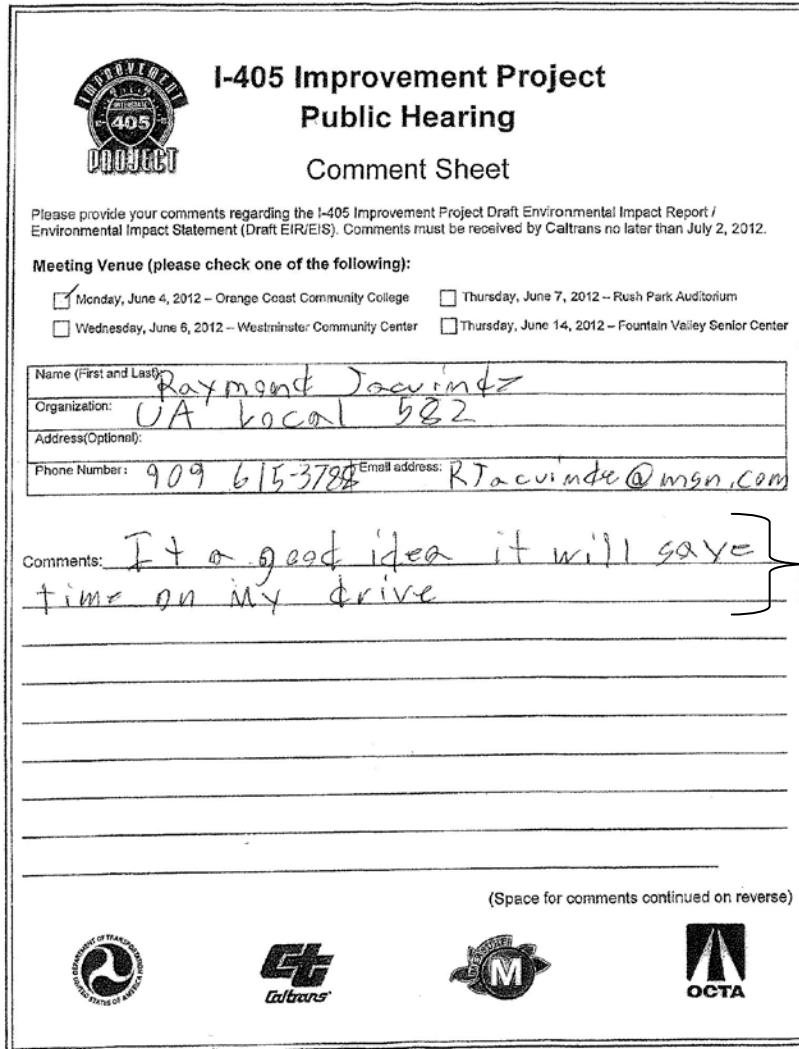 IMPROVEMENT
INTERSTATE
405
PROJECT
I-405 Improvement Project
Public Hearing
Comment Sheet
Please provide your comments regarding the I-405 Improvement Project Draft Environmental Impact Report /
Environmental Impact Statement (Draft EIR/EIS). Comments must be received by Caltrans no later than July 2, 2012.
Meeting Venue (please check one of the following):
Monday, June 4, 2012 – Orange Coast Community College
Thursday, June 7, 2012 – Rush Park Auditorium
Wednesday, June 6, 2012 – Westminster Community Center
Thursday, June 14, 2012 – Fountain Valley Senior Center
Name (First and Last): Raymond
Organization: UA Local 582
Address(Optional):
Phone Number: 909 615-3788 Email address:
Comments: It a good idea it will save
time on my drive
(Space for comments continued on reverse)
DEPARTMENT OF TRANSPORTATION
UNITED STATES OF AMERICA
Ct
Caltrans
M
OCTA